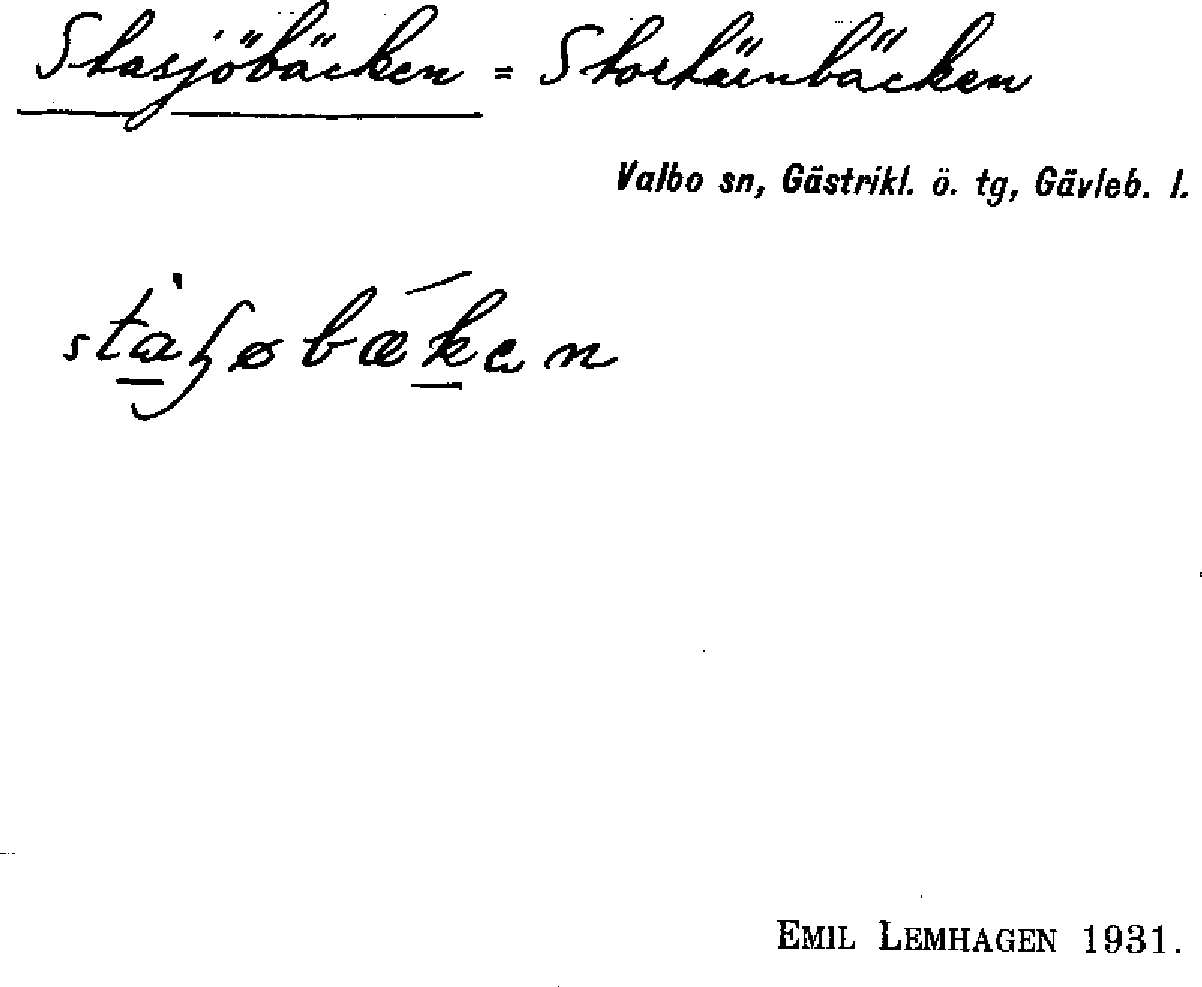 Stasjöbäcken = Stortärnbäcken
Valbo sn, Gästrikl. ö. tg, Gävleb. l.
EMIL LEMHAGEN 1931.